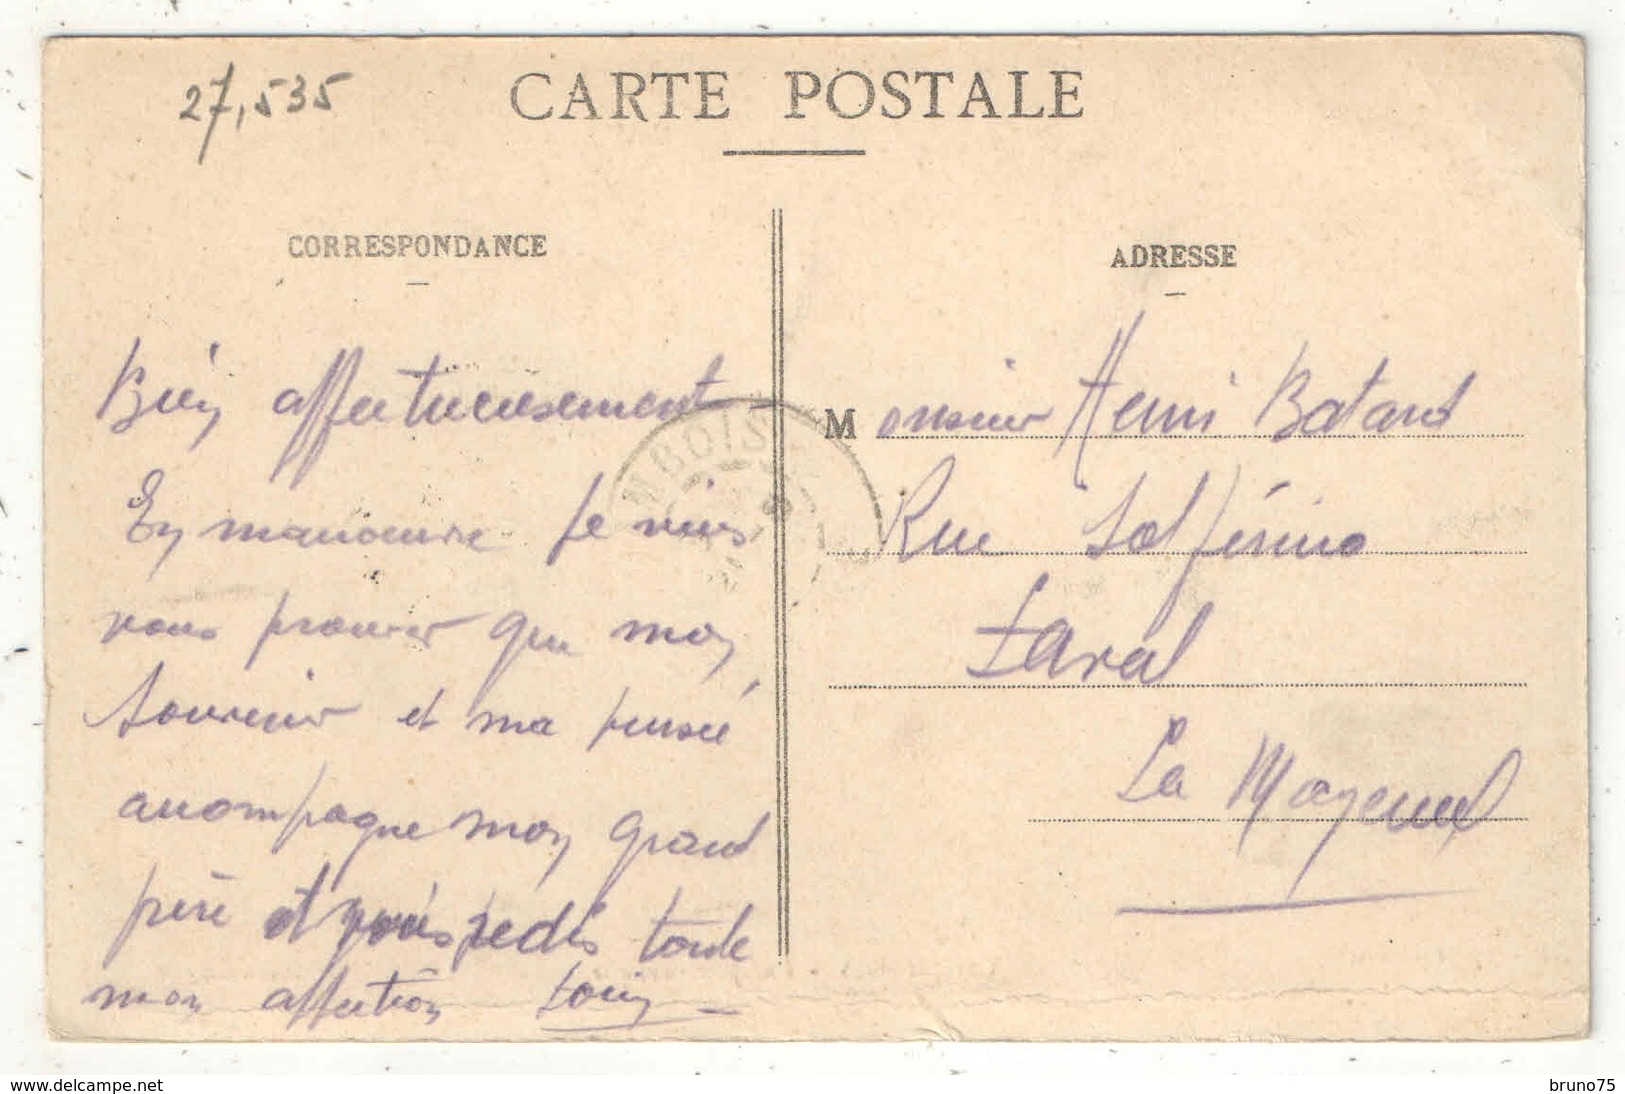 27,535
CARTE POSTALE
CORRESPONDANCE
Bien affectueusement
En manoeuvre je viens
vous prouver que mon
souvenir et ma pensée
accompagne mon grand
père et vous redis toute
mon affection Louis
MBOIS
ADRESSE
Monsieur Henri Batard
Rue Solférino
Laval
La Mayenne
www.delcampe.net
bruno75